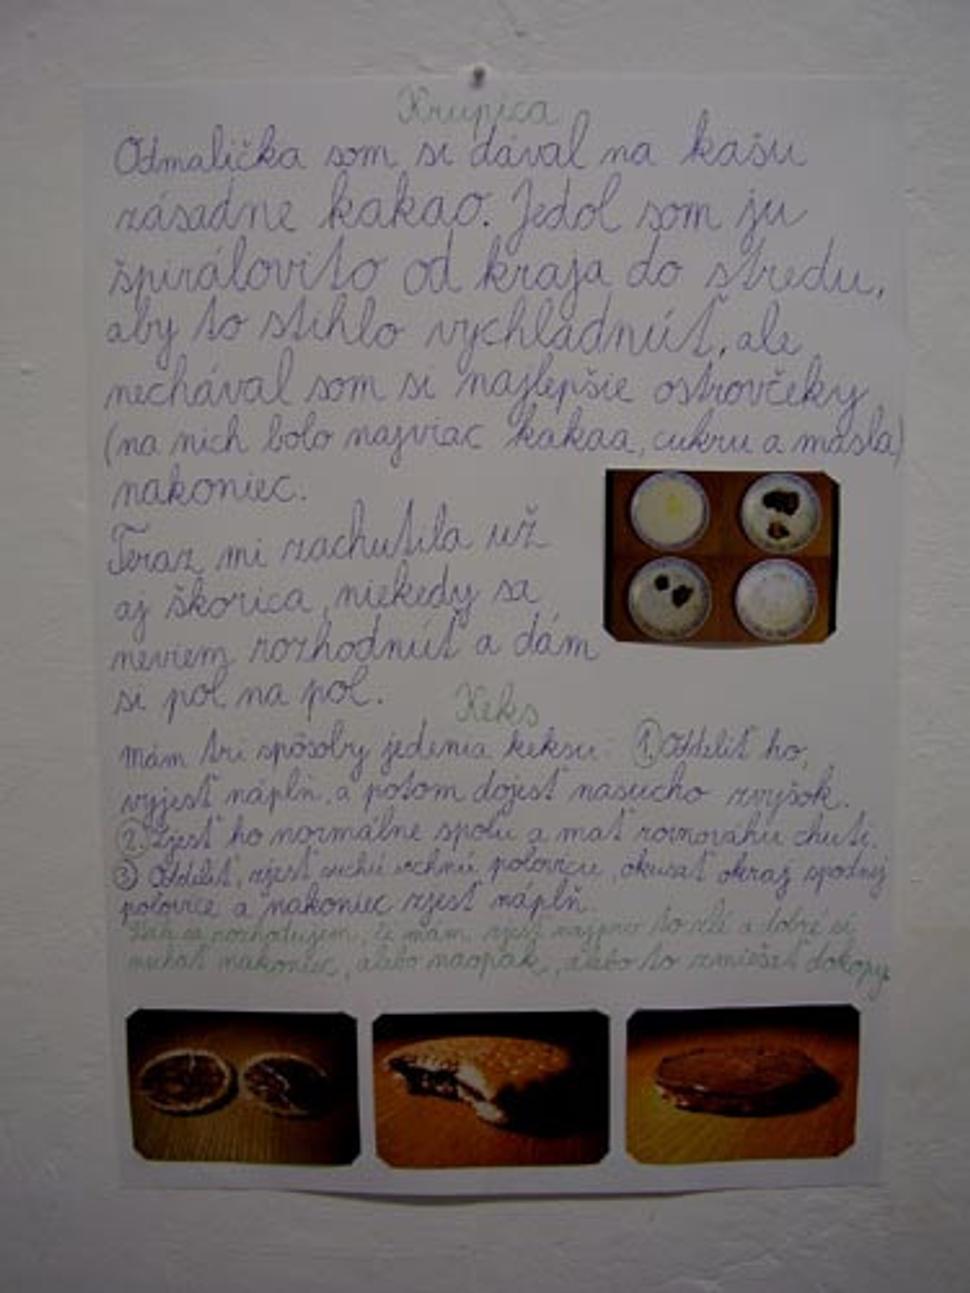 Krupica
Odmalička som si dával na kašu
zásadne kakao. Jedol som ju
špirálovito od kraja do stredu,
aby to stihlo vychladnúť, ale
nechával som si najlepšie ostrovčeky
(na nich bolo najviac kakaa, cukru a masla)
nakoniec.
Teraz mi zachutila už
aj škorica, niekedy sa
neviem rozhodnúť a dám
si pol na pol.
Keks
Mám tri spôsoby jedenia keksu: 1. Oddeliť ho,
vyjesť náplň, a potom dojesť nasucho zvyšok.
2. Zjesť ho normálne spolu a mať rovnováhu chutí.
3 Oddeliť, zjesť suchú vrchnú polovicu, okusať okraj spodnej
polovice a nakoniec zjesť náplň.
sa rozhodujem, či mám zjesť najprv to zlé a dobré si
nechať nakoniec, alebo naopak, alebo to zmiešať dokopy.